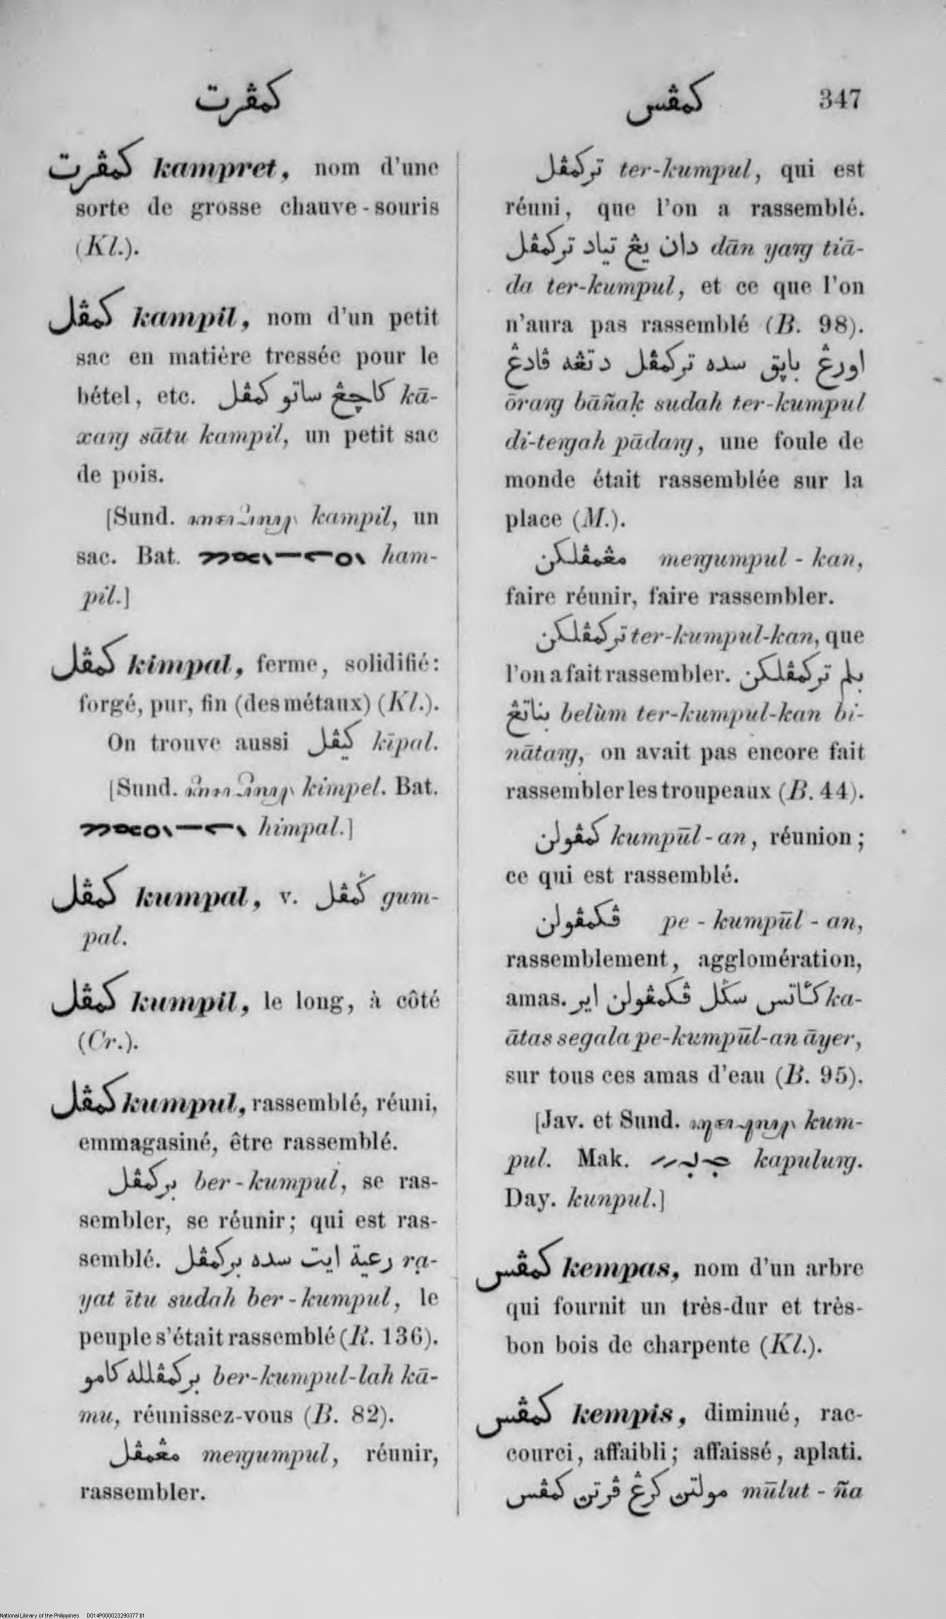 كمڤرت
كمڤس
347
كمڤرت kampret, nom d'une
sorte de grosse chauve-souris
(Kl.).
كمڤل kampil, nom d'un petit
sac en matière tressée pour le
bétel, etc. كاچڠ ساتو كمڤل kā-
xaṅg sātu kampil, un petit sac
de pois.
[Sund. kampil, un
sac. Bat. ham-
pil.]
كمڤل kimpal, ferme, solidifié:
forgé, pur, fin (des métaux) (Kl.).
On trouve aussi كيڤل kīpal.
[Sund. kimpel. Bat.
himpal.]
كمڤل kumpal, v. ݢمڤل gum-
pal.
كمڤل kumpil, le long, à côté
(Cr.).
كمڤل kumpul, rassemblé, réuni,
emmagasiné, être rassemblé.
بركمڤل ber-kumpul, se ras-
sembler, se réunir; qui est ras-
semblé. رعية ايت سده بركمڤل ra-
yat ītu sudah ber-kumpul, le
peuple s'était rassemblé (R. 136).
بركمڤلله كامو ber-kumpul-lah kā-
mu, réunissez-vous (B. 82).
مڠمڤل meṅgumpul, réunir,
rassembler.
تركمڤل ter-kumpul, qui est
réuni, que l'on a rassemblé.
دان يڠ تياد تركمڤل dān yaṅg tiā-
da ter-kumpul, et ce que l'on
n'aura pas rassemblé (B. 98).
اورڠ باپق سده تركمڤل دتڠه ڤادڠ
ōraṅg bāñak sudah ter-kumpul
di-teṅgah pādaṅg, une foule de
monde était rassemblée sur la
place (M.).
مڠمڤلكن meṅgumpul-kan,
faire réunir, faire rassembler.
تركمڤلكن ter-kumpul-kan, que
l'on a fait rassembler. بلم تركمڤلكن
بناتڠ belùm ter-kumpul-kan bi-
nātaṅg, on avait pas encore fait
rassembler les troupeaux (B. 44).
كمڤولن kumpūl-an, réunion;
ce qui est rassemblé.
ڤكمڤولن pe-kumpūl-an,
rassemblement, agglomération,
amas. كأاتس سݢل ڤكمڤولن اير ka-
ātas segala pe-kumpūl-an āyer,
sur tous ces amas d'eau (B. 95).
[Jav. et Sund. kum-
pul. Mak. kapuluṅg.
Day. kunpul.]
كمڤس kempas, nom d'un arbre
qui fournit un très-dur et très-
bon bois de charpente (Kl.).
كمڤس kempis, diminué, rac-
courci, affaibli; affaissé, aplati.
مولتن كرڠ ڤرتن كمڤس mūlut-ña
National Library of the Philippines